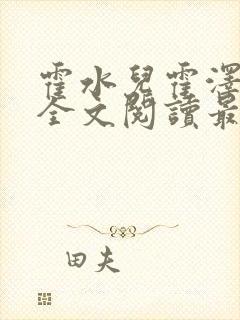 霍水兒霍澤
全文閱讀最
田夫